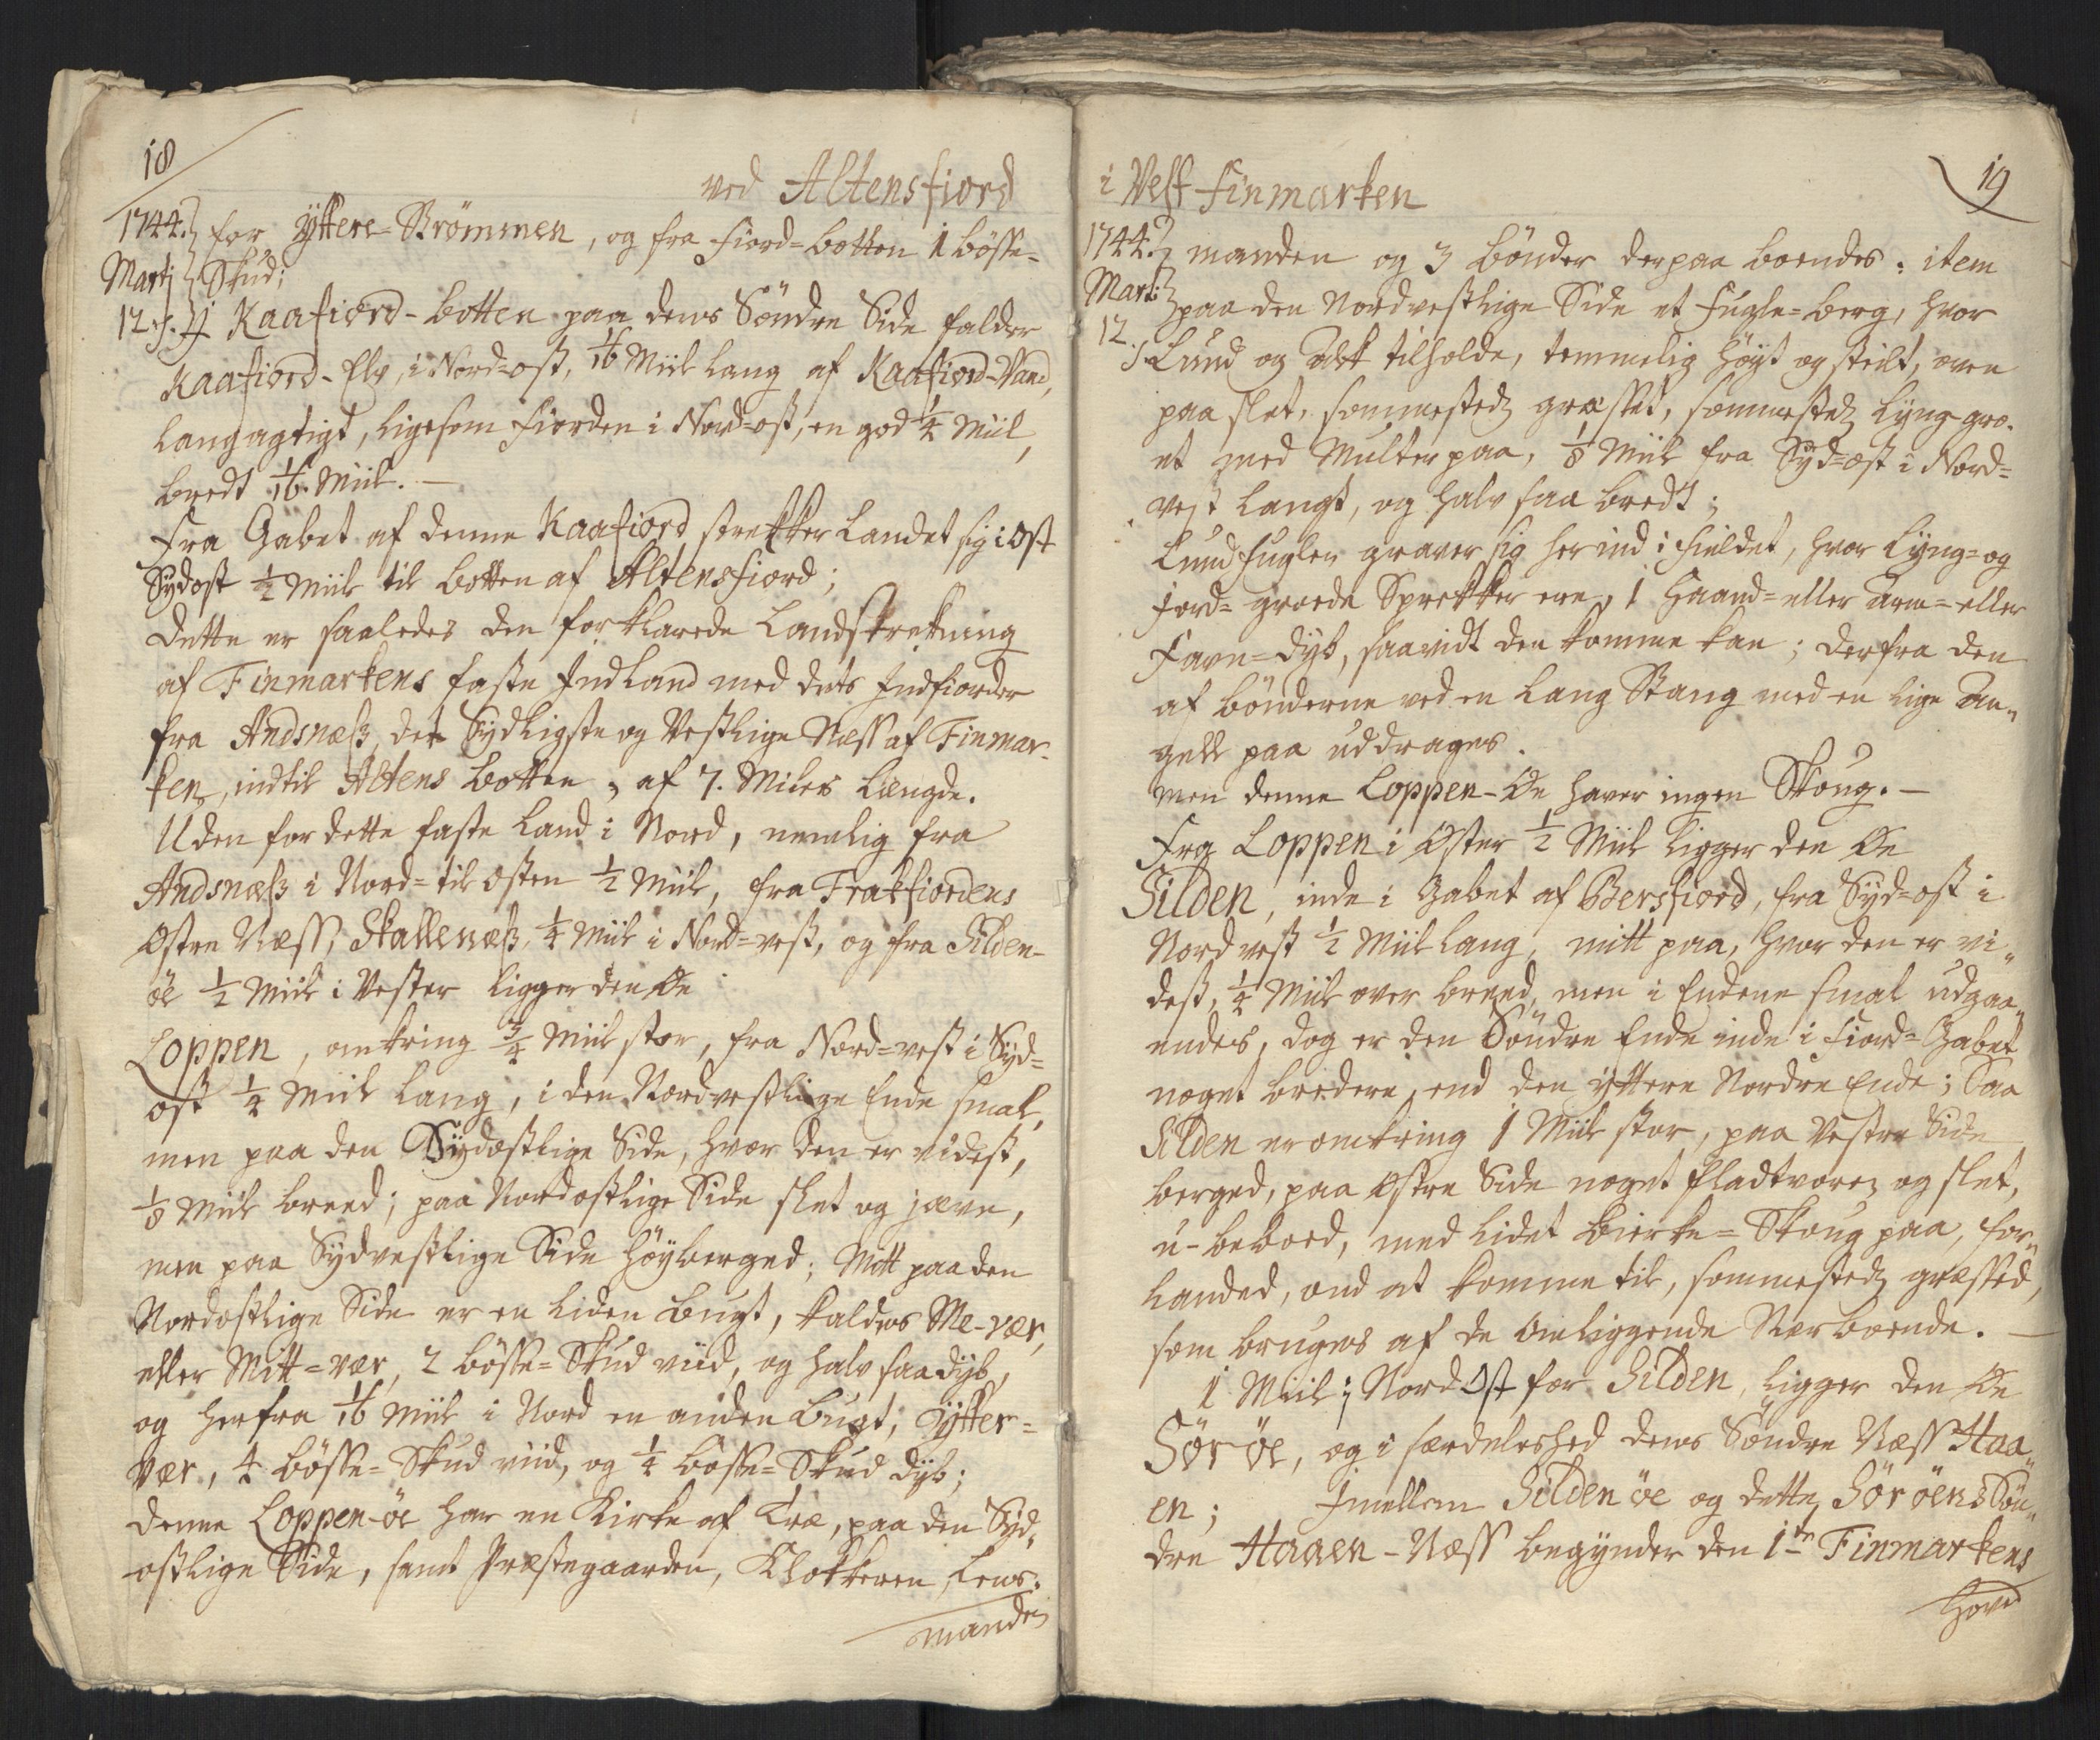 18
ved Altensfiord
1744. for Ÿttere-Strömmen, og fra Fiord-botten 1 bösse-
Martj Skud;
12. I Kaafiord-botten paa dens Söndre Side falder
Kaafiord-Elv, i Nord-ost, 1/16 Miil lang af Kaafiord-Vand,
langagtigt, ligesom Fiorden i Nord-ost, en god 1/4 Miil,
bredt 1/16. Miil. —
Fra Gabet af denne Kaafiord strekker Landet sig i Ost
Sydost 1/2 Miil til botten af Altensfiord;
Dette er saaledes den forklarede Landstrekning
af Finmarkens faste Indland med dets Indfiorder
fra Andsnæss, det Sydligste og Vestlige Næss af Finmar-
ken, indtil Altens Botten, af 7. Miles Længde.
Uden for dette faste Land i Nord, nemlig fra
Andsnæss i Nord- til Osten 1/2 Miil, fra Frakfiordens
Ostre Næss, Skallenæss, 1/4 Miil i Nord-vest, og fra Silden-
öe 1/2 Miil i Vester ligger den Øe
Loppen, omkring 3/4 Miil stor, fra Nord-vest i Syd-
ost 1/4 Miil lang, i den Nordvestlige Ende smal,
men paa den Sydostlige Side, hvor den er videst,
1/8 Miil breed; paa Nordostlige Side slet og jævn,
men paa Sydvestlige Side höyberged; Mitt paa den
Nordostlige Side er en liden Bugt, kaldes Me-vær,
eller Mitt-vær, 2 bösse-Skud viid, og halv saa dyb,
og herfra 1/16 Miil i Nord en anden Bugt, Ÿtter-
vær, 4 bösse-Skud viid, og 1/4 bösse-Skud dyb;
denne Loppen-öe har en Kirke af Træ, paa den Syd-
ostlige Side, samt Præstegaarden, Klokkeren, Lens-
manden
19
i Vest-Finmarken
1744. manden og 3 bönder derpaa boendes: item
Martj paa den Nordvestlige Side et Fugle-berg, hvor
12. Lund og Alk tilholde, temmelig höyt og steilt, oven
paa slet, sommestedz græsset, sommestedz lyng-gro-
et med Multer paa, 1/8 Miil fra Syd-ost i Nord-
vest langt, og halv saa bredt;
Lundfuglen graver sig her ind i Fieldet, hvor Lyng- og
Jord-groede Sprekker ere, 1 Haand- eller Arm- eller
Favn-dyb, saavidt den komme kan; derfra den
af bönderne ved en lang Stang med en lige An-
gell paa uddrages.
men denne Loppen-Øe haver ingen Skoug. —
Fra Loppen i Øster 1/2 Miil ligger den Øe
Silden, inde i Gabet af Bersfiord, fra Syd-ost i
Nordvest 1/2 Miil lang, mitt paa, hvor den er vi-
dest, 1/4 Miil over breed, men i Enderne smal udgaa-
endes, dog er den Söndre Ende inde i Fiord-Gabet
noget bredere, end den yttere Nordre Ende; Saa
Silden er omkring 1 Miil stor, paa Vestre Side
berged, paa Østre Side noget fladtvoren og slet,
u-beboed, med lidet Birke-Skoug paa, for-
landed, ond at komme til, sommestedz græssed,
som bruges af de omliggende Nærboende. —
1 Miil i NordOst for Silden, ligger den Øe
Sör öe, og i særdeleshed dens Söndre Næss Haa-
en; Imellem Silden öe og dette Sör öens Sön-
dre Haaen-Næss begynder den 1te Finmarkens
Hoved